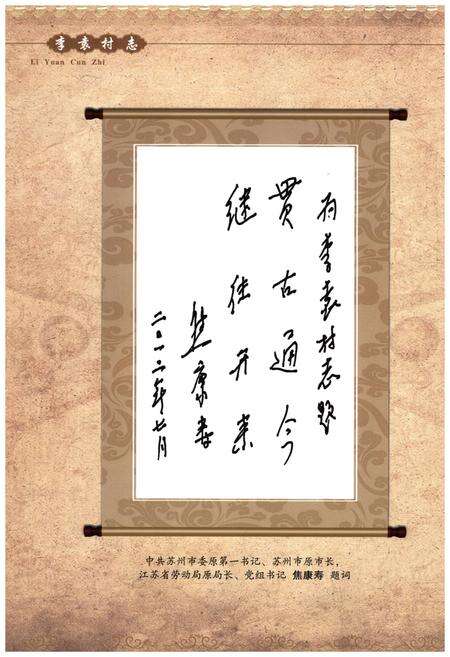 李袁村志
Li Yuan Cun Zhi
为李袁村志题
贯古通今
继往开来
焦康寿
二〇一二年七月
中共苏州市委原第一书记、苏州市原市长，
江苏省劳动局原局长、党组书记 焦康寿 题词